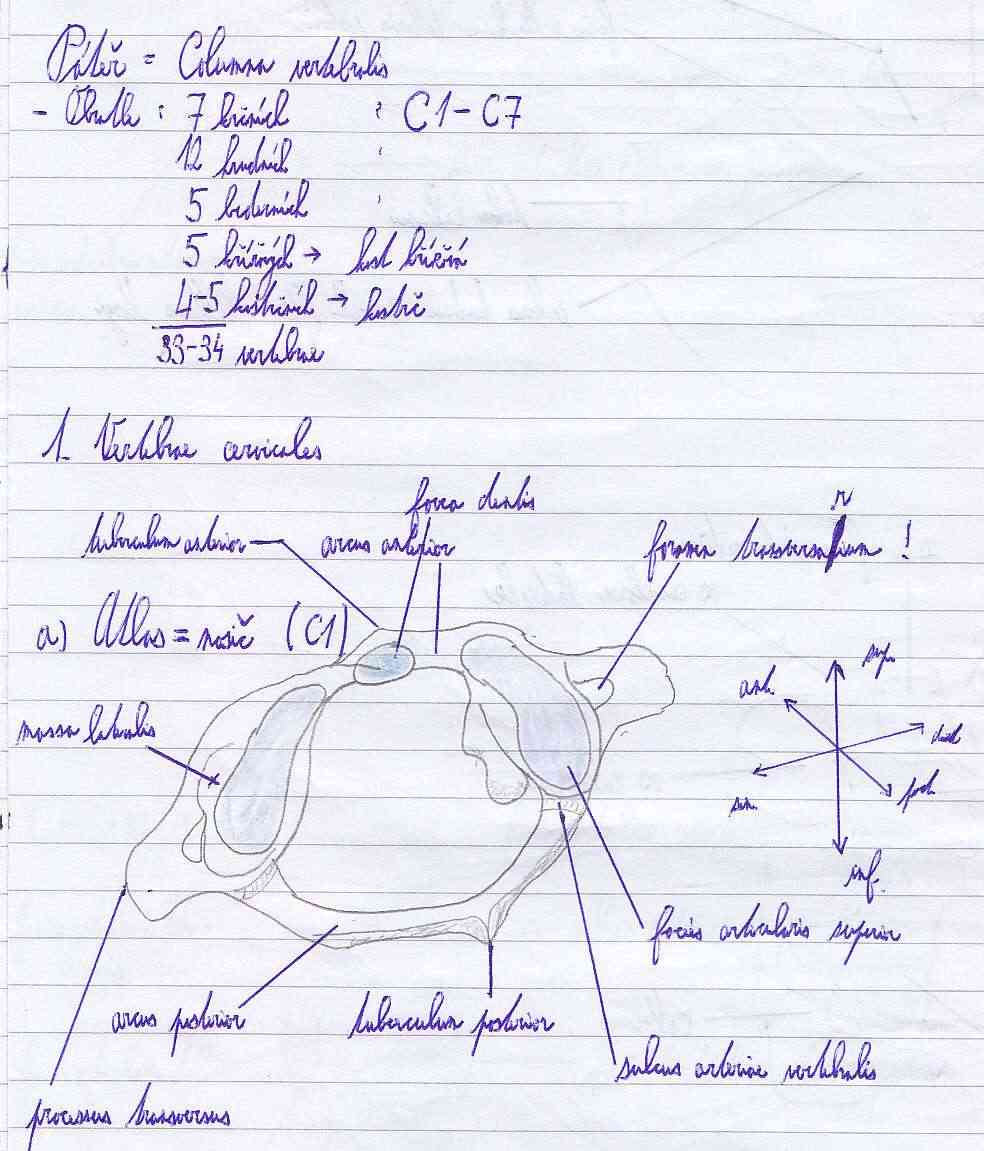 Páteř = Columna vertebralis
- Obratle : 7 krčních : C1-C7
12 hrudních
5 bederních
5 křížových → kost křížová
4-5 kostrčních → kostrč
33-34 vertebrae
1. Vertebrae cervicales
fovea dentis
tuberculum anterior
arcus anterior
foramen transversarium !
a) Atlas = nosič (C1)
sup.
ant.
massa lateralis
dext.
sin.
post.
inf.
facies articularis superior
arcus posterior
tuberculum posterior
sulcus arteriae vertebralis
processus transversus